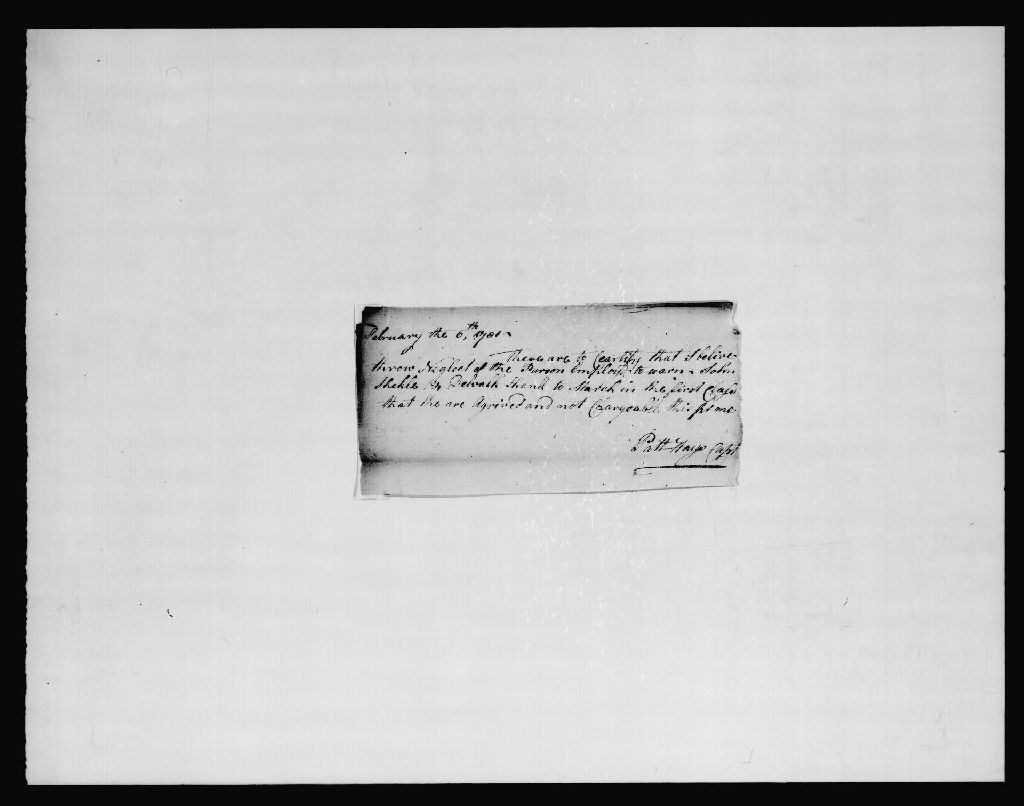 February the 6th 1781
These are to Ceartify that I belive
threw Neglect of the Purson Employd to warn John
Shekle & Dewalt Shank to March in the first Class
that the are Agrived and not Chargeable this from me
Patt Hays Capt